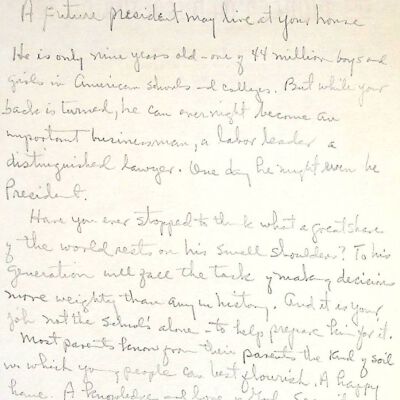 A Future president may live at your house
He is only nine years old - one of 44 million boys and
girls in American schools and colleges. But while your
back is turned, he can overnight become an
important businessman, a labor leader a
distinguished lawyer. One day he might even be
President.
Have you ever stopped to think what a great share
of the world rests on his small shoulders? To his
generation will face the task of making decisions
more weighty than any in history. And it is your
job not the schools alone - to help prepare him for it.
Most parents know from their parents the kind of soil
in which young people can best flourish. A happy
home. A knowledge and love